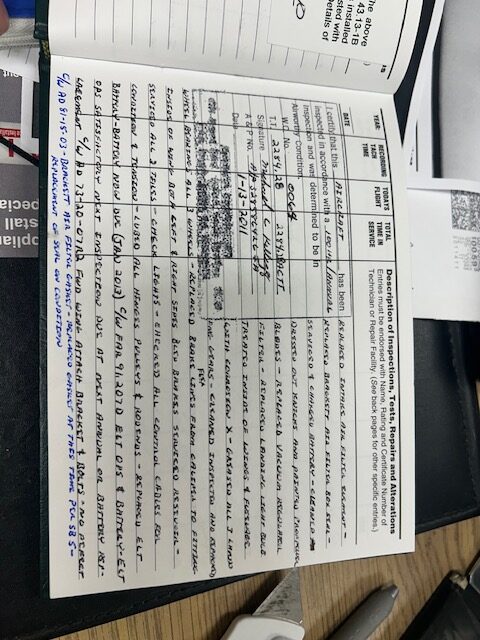 he above
43.13-1B
installed
sted with
details of
YEAR:
DATE
RECORDING TACH TIME
TODAY'S FLIGHT
TOTAL TIME IN SERVICE
Description of Inspections, Tests, Repairs and Alterations
Entries must be endorsed with Name, Rating and Certificate Number of
Technician or Repair Facility. (See back pages for other specific entries.)
I certify that this AIRCRAFT has been
inspected in accordance with a 100 HR/ANNUAL
inspection and was determined to be in
Airworthy Condition.
W.O. No. 0004
T.T. 2284.28
Signature Michael C
A & P No.
Date 1-13-2011
REPLACED INTAKE AIR FILTER ELEMENT -
REPLACED BRACKETT AIR FILTER BOX SEAL -
SERVICED & CHARGED BATTERY -
DRESSED OUT NICKS AND PAINTED PROPELLER
BLADES - REPLACED VACUUM REGULATOR
FILTER - REPLACED LANDING LIGHT BULB
TREATED INSIDE OF WINGS & FUSELAGE
WITH CORROSION X - GREASED ALL 3 LAND
ING GEARS - CLEANED INSPECTED AND REPACKED
WHEEL BEARINGS ALL 3 WHEELS - REPLACED BRAKE LINES FROM CALIPER TO FITTING
INSIDE OF WING BOTH LEFT & RIGHT SIDES BLED BRAKES SERVICED RESERVOIR -
SERVICED ALL 3 TIRES - CHECK LIGHTS - CHECKED ALL CONTROL CABLES FOR
CONDITION & TENSION - LUBED ALL HINGES PULLEYS & RODENDS - REPLACED ELT
BATTERY - BATTERY NOW DUE (JAN 2013) C/W FAR 91.207D ELT OPS & BATTERY - ELT
OPS SATISFACTORY NEXT INSPECTION DUE AT NEXT ANNUAL OR BATTERY RE-
PLACEMENT C/W AD FWD WING ATTACH BRACKET & BOLTS - NO DEFECT
C/W AD 91-15-03 BRACKETT AIR FILTER GASKET - REPLACED GASKET AT THIS TIME PER SB 5 -
REPLACMENT OF SEAL ON CONDITION